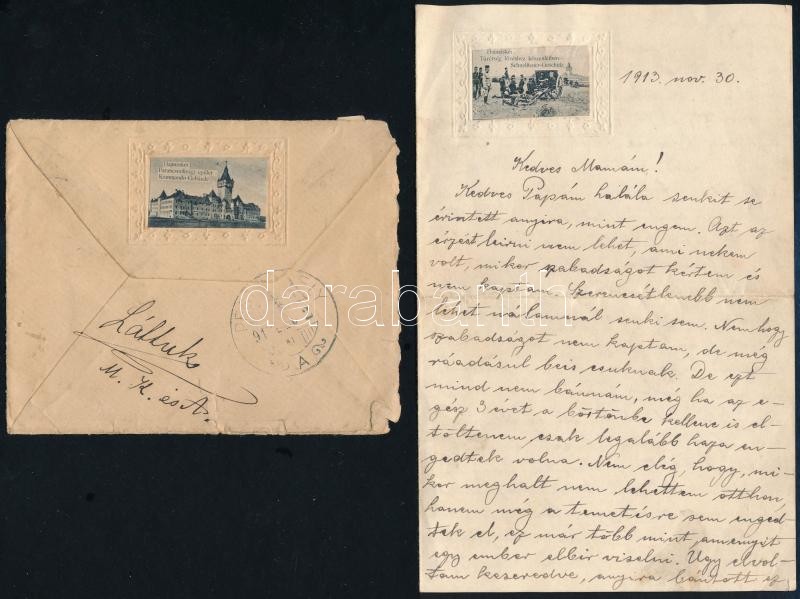 Hajmáskér
Parancsnoksági épület
Kommando-Gebäude
Láttuk
M. K. és A.
Hajmáskér
Tüzérség lövéshez készenlétben
Schnellfeuer-Geschütz
1913. nov. 30.
Kedves Mamám!
Kedves Papám halála senkit se
érintett anyira, mint engem. Azt az
érzést leirni nem lehet, ami nekem
volt, mikor szabadságot kértem és
nem kaptam. Szerencsétlenebb nem
lehet nálamnál senki sem. Nem hogy
szabadságot nem kaptam, de még
ráadásul beis csuknak. De ezt
mind nem bánnám, még ha az e-
gész 3 évet a börtönbe kellene is el-
töltenem csak legalább haza en-
gedtek volna. Nem elég, hogy, mi-
kor meghalt nem lehettem otthon,
hanem még a temetésre sem enged-
tek el, ez már több mint amenyit
egy ember elbir viselni. Úgy elvol-
tam keseredve, anyira bántott ez
darabanth.com